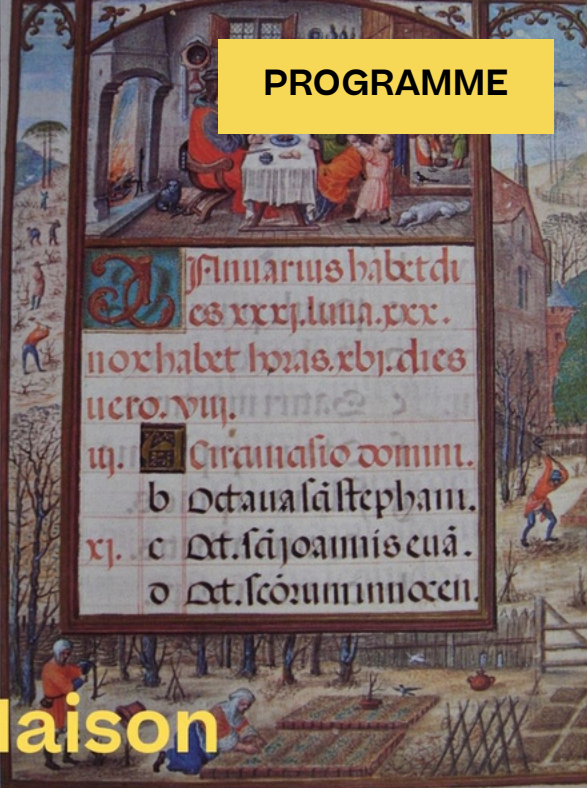 PROGRAMME
Januarius habet di
es xxxj. luna. xxx.
nox habet horas. xbj. dies
uero. viij.
iij. A Circuncisio domini.
b Octaua scī stephani.
xj. c Oct. scī joannis euā.
d Oct. scōrum innocen.
laison